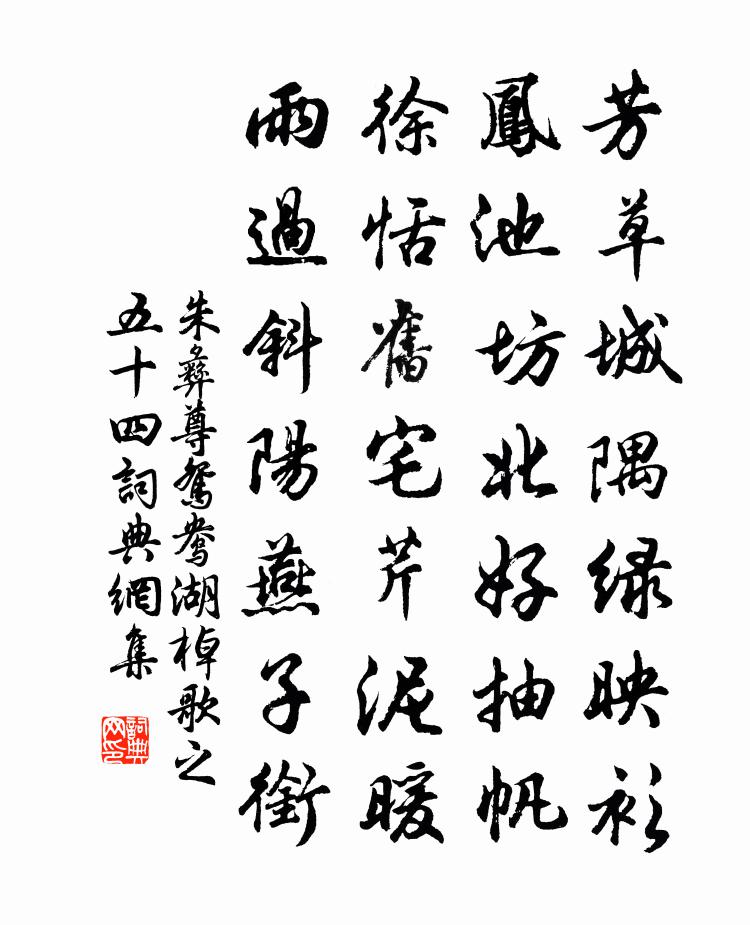 芳草城隅绿映衫
鳳池坊北好抽帆
徐恬舊宅芹泥暖
雨過斜陽燕子銜
朱彝尊鴛鴦湖棹歌之
五十四詞典網集
詞典
网印